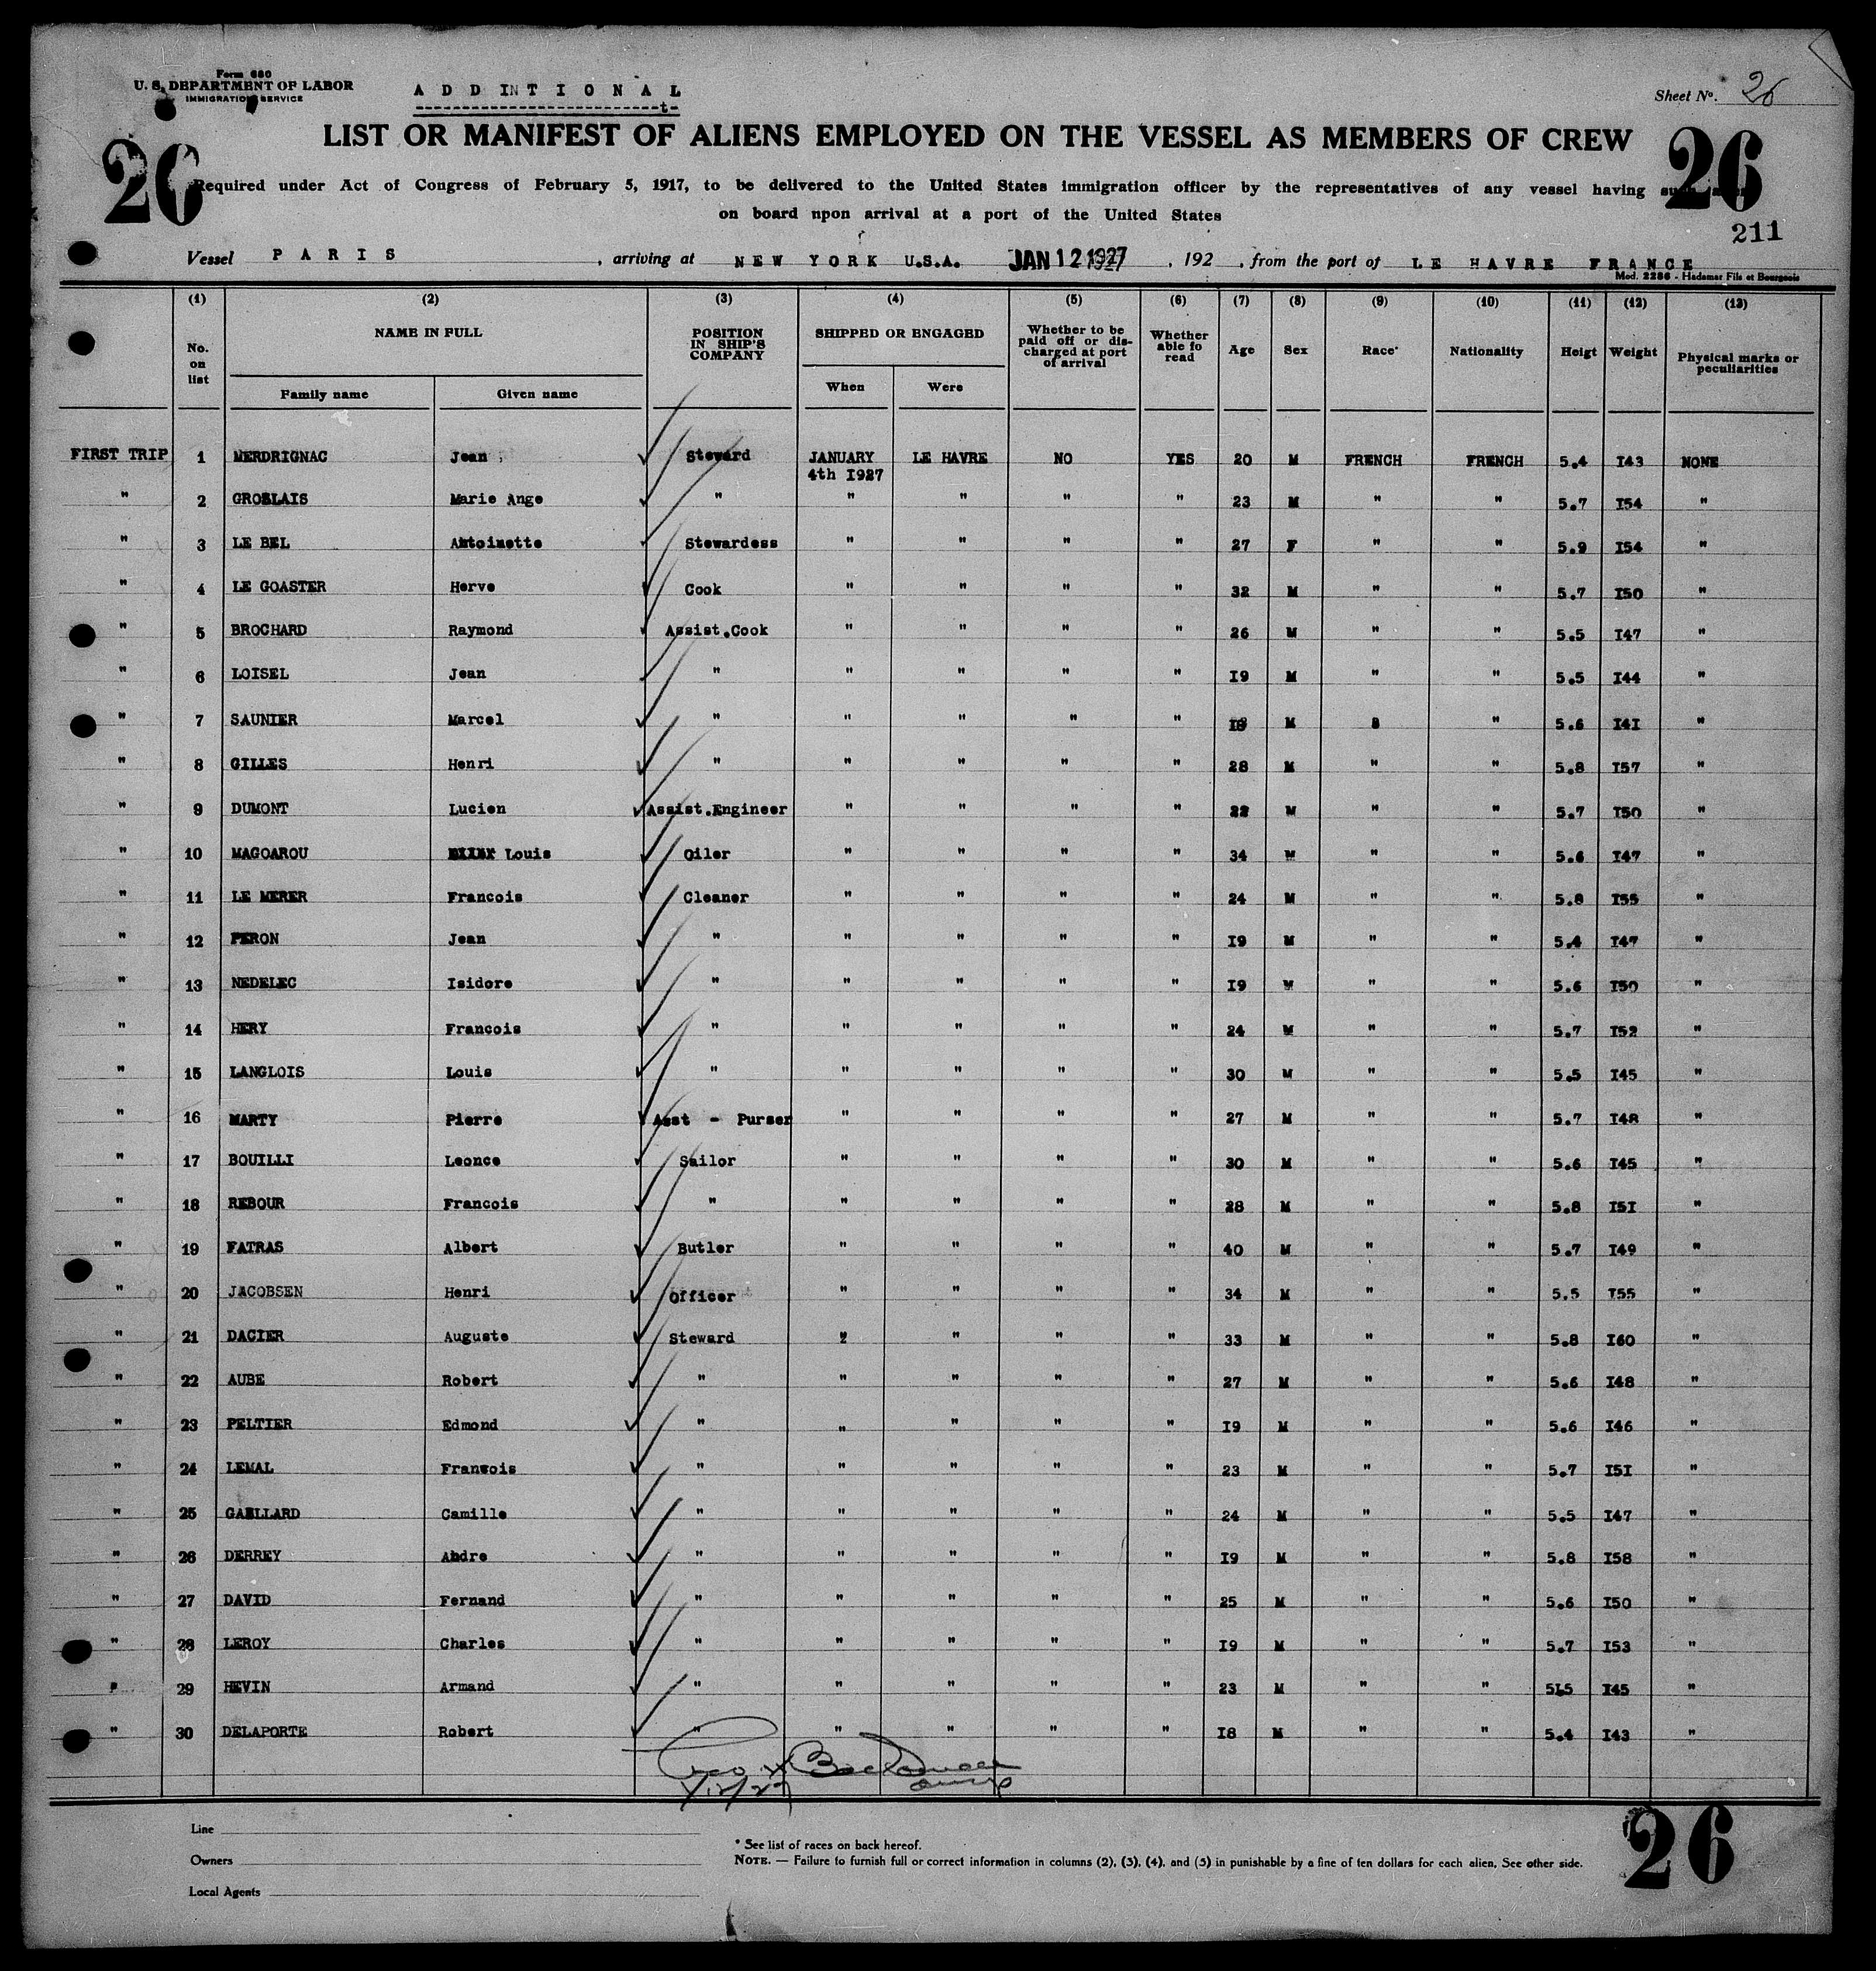 Form 680
U. S. DEPARTMENT OF LABOR
IMMIGRATION SERVICE
A D D I T I O N A L
Sheet No. 26
LIST OR MANIFEST OF ALIENS EMPLOYED ON THE VESSEL AS MEMBERS OF CREW
26 26
Required under Act of Congress of February 5, 1917, to be delivered to the United States immigration officer by the representatives of any vessel having such
on board npon arrival at a port of the United States
211
Vessel P A R I S , arriving at N E W Y O R K U.S.A. JAN 12 1927 , 192 , from the port of L E H A V R E F R A N C E
Mod. 2286 - Hadamar Fils et Bourgeois
(1) (2) (3) (4) (5) (6) (7) (8) (9) (10) (11) (12) (13)
No. on list NAME IN FULL POSITION IN SHIP'S COMPANY SHIPPED OR ENGAGED Whether to be paid off or dis-charged at port of arrival Whether able fo read Age Sex Race* Nationality Heigt Weight Physical marks or peculiarities
Family name Given name When Were
FIRST TRIP 1 MERDRIGNAC Jean Steward JANUARY 4th I927 LE HAVRE NO YES 20 M FRENCH FRENCH 5.4 I43 NONE
" 2 GROSLAIS Marie Ange " " " " " 23 M " " 5.7 I54 "
" 3 LE BEL Antoinette Stewardess " " " " 27 F " " 5.9 I54 "
" 4 LE GOASTER Herve Cook " " " " 32 M " " 5.7 I50 "
" 5 BROCHARD Raymond Assist.Cook " " " " 26 M " " 5.5 I47 "
" 6 LOISEL Jean " " " " " I9 M " " 5.5 I44 "
" 7 SAUNIER Marcel " " " " " M " 5.6 I4I "
" 8 GILLES Henri " " " " " 28 M " " 5.8 I57 "
" 9 DUMONT Lucien Assist.Engineer " " " " 22 M " " 5.7 I50 "
" 10 MAGOAROU Louis Oiler " " " " 34 M " " 5.6 I47 "
" 11 LE MERER Francois Cleaner " " " " 24 M " " 5.8 I55 "
" 12 PERON Jean " " " " " I9 M " " 5.4 I47 "
" 13 NEDELEC Isidore " " " " " I9 M " " 5.6 I50 "
" 14 HERY Francois " " " " " 24 M " " 5.7 I52 "
" 15 LANGLOIS Louis " " " " " 30 M " " 5.5 I45 "
" 16 MARTY Pierre Asst - Purser " " " " 27 M " " 5.7 I48 "
" 17 BOUILLI Leonce Sailor " " " " 30 M " " 5.6 I45 "
" 18 REBOUR Francois " " " " " 28 M " " 5.8 I5I "
" 19 FATRAS Albert Butler " " " " 40 M " " 5.7 I49 "
" 20 JACOBSEN Henri Officer " " " " 34 M " " 5.5 I55 "
" 21 DACIER Auguste Steward " " " " 33 M " " 5.8 I60 "
" 22 AUBE Robert " " " " " 27 M " " 5.6 I48 "
" 23 PELTIER Edmond " " " " " I9 M " " 5.6 I46 "
" 24 LEMAL " " " " " 23 M " " 5.7 I5I "
" 25 Camille " " " " " 24 M " " 5.5 I47 "
" 26 DERREY Andre " " " " " I9 M " " 5.8 I58 "
" 27 DAVID Fernand " " " " " 25 M " " 5.6 I50 "
" 28 LEROY Charles " " " " " I9 M " " 5.7 I53 "
" 29 HEVIN Armand " " " " " 23 M " " I45 "
" 30 DELAPORTE Robert " " " " " I8 M " " 5.4 I43 "
1/12/27
Line
Owners
Local Agents
* See list of races on back hereof.
NOTE. — Failure to furnish full or correct information in columns (2), (3), (4), and (5) in punishable by a fine of ten dollars for each alien, See other side.
26